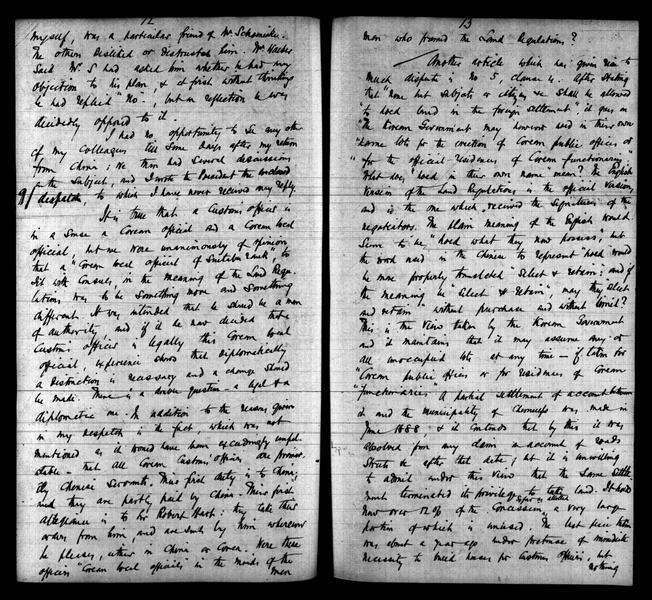 12
myself, was a particular friend of Mr Schoenicke.
The others disliked or distrusted him. Mr
said Mr. S had asked him whether he had any
objection to his plan & at first without thinking
he had replied "No", but on reflection he was
decidedly opposed to it.
I had no opportunity to see any other
of my colleagues till some days after my return
from China; we then had several discussions
on the subject, and I wrote to President the enclosed
despatch, to which I have never received any reply.
It is true that a Customs officer is
in a sense a Corean official and a Corean local
official, but we were unanimously of opinion
that a "Corean local official of suitable rank", to
sit with Consuls, in the meaning of the Land Regu-
lations, was to be something more and something
different. It was intended that he should be a man
of authority, and if it be now decided that a
Customs officer is legally this Corean local
official, experience shows that diplomatically
a distinction is necessary and a change should
be made. There is a double question – a legal & a
diplomatic one. In addition to the reasons given
in my despatch is the fact, which was not
mentioned as it would have been exceedingly impol-
itic – that all Corean Customs officers are
Chinese servants. Their first duty is to China;
and they are partly paid by China. Their first
allegiance is to Sir Robert Hart: they take their
orders from him and are sent by him wherever
he pleases, either in China or Corea. Were these
officers "Corean local officials" in the minds of the
men
13
men who framed the Land Regulations?
Another article which has given rise to
much dispute is No 5, clause 4. After stating
that "none but subjects or citizens &c shall be allowed
"to hold land in the foreign settlement", it goes on
"The Korean Government may however hold in their own
"name lots for the erection of Corean public offices or
"for the official residences of Corean functionaries."
What does "hold in their own name" mean? The English
version of the Land Regulations is the official version,
and is the one which received the signatures of the
negotiators. The plain meaning of the English would
seem to be, "hold what they now possess", but
the word used in the Chinese to represent hold would
be more properly translated "select & retain"; and if
the meaning be "select & retain", may they select
and retain without purchase and without limit?
This is the view taken by the Korean Government
and it maintains that it may assume any or
all unoccupied lots at any time – if taken for
"Corean public offices or for residences of Corean
"functionaries". A partial settlement of account between
it and the municipality of Chemulpo was made in
June 1888, & it contends that by this it was
absolved from any claim on account of roads
streets &c after that date; but it is unwilling
to admit under this view that the same settle-
ment terminated its privilege to select or take land. It holds
now over 12% of the Concession, a very large
portion of which is unused. The last piece taken
was about a year ago under pretense of immediate
necessity to build houses for Customs officers, but
nothing